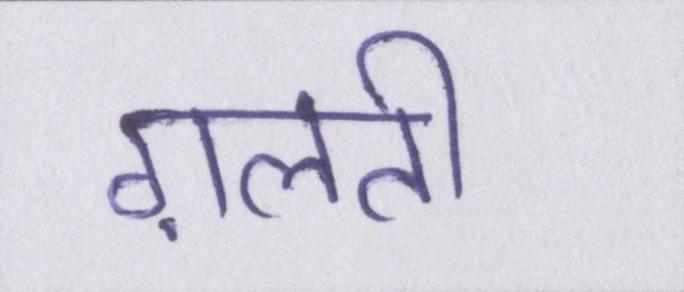 ग़लती